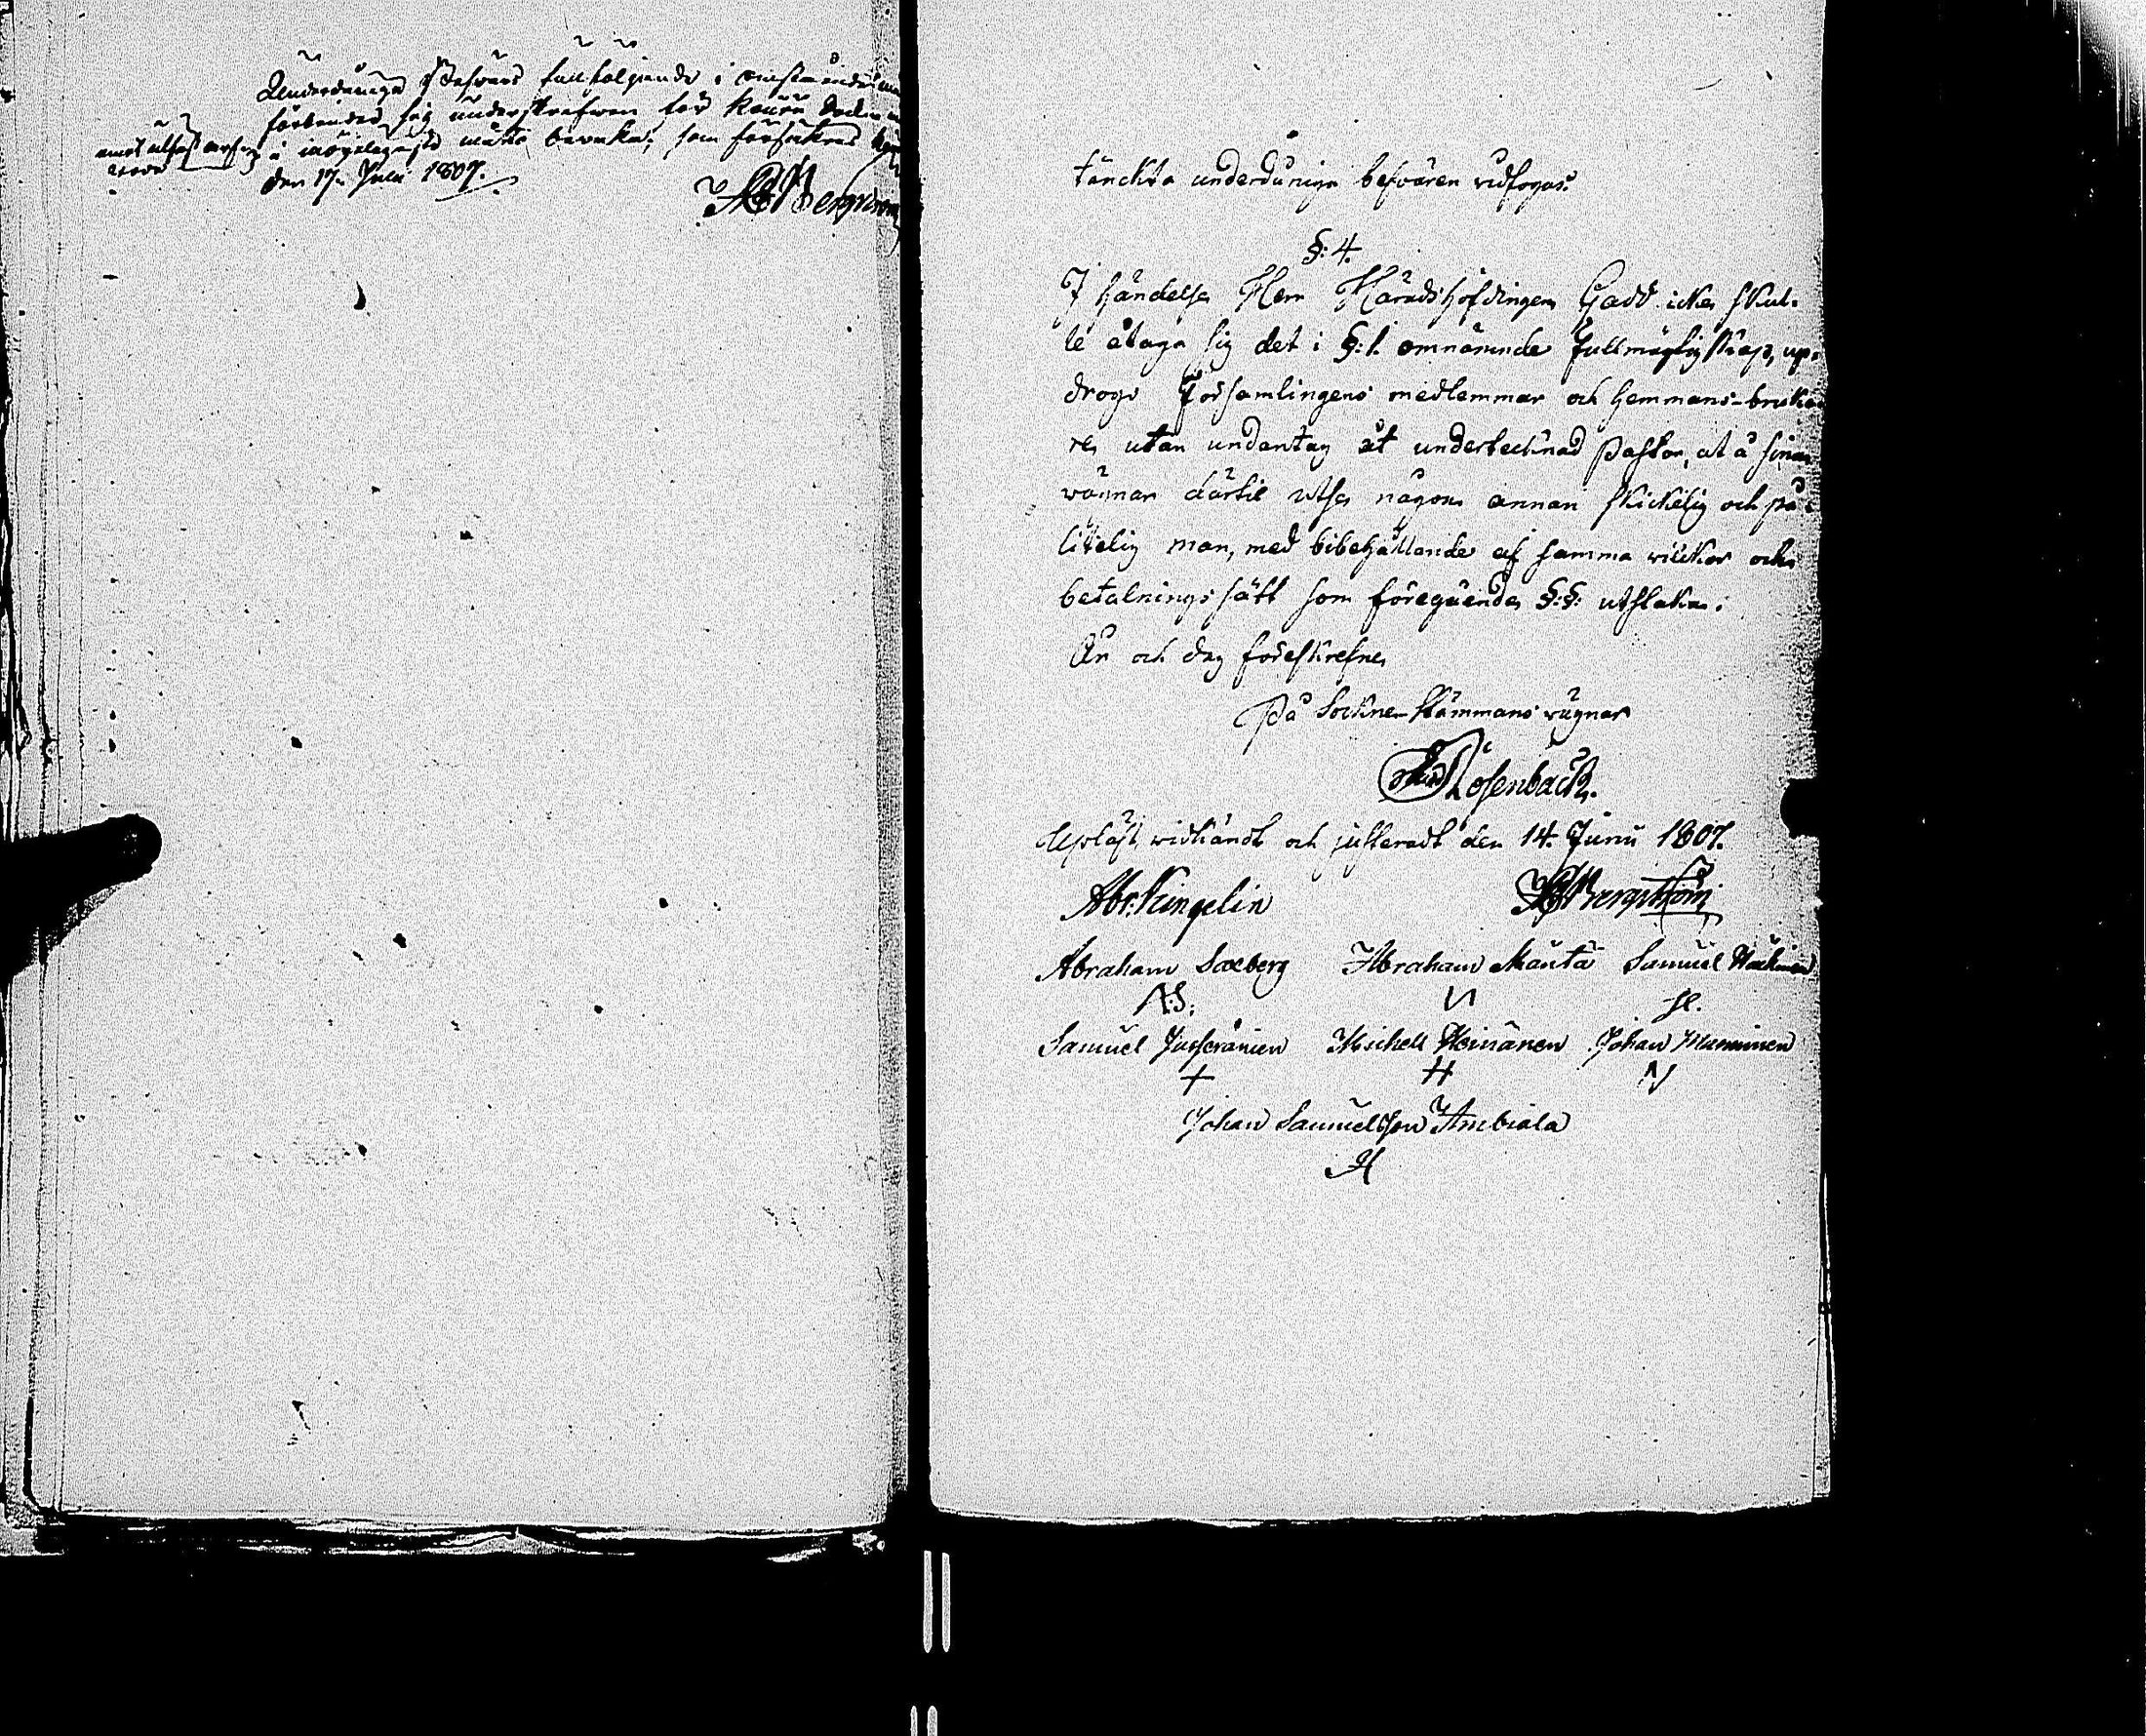 Underdåniga Besvärs fullföljande i omförmälde
förbinder sig underskrefwen för
emot utfäst arfwode å möijeligaste måtto bewaka; som försäkras
den 17. Julii 1807.
HBergström
tänckta underdåniga besvären widfogas.
§: 4.
I händelse Herr Häradshöfdingen Gadd icke skul-
le åtaga sig det i §: 1. omnämnde fullmägtigskap, up-
drogs Församlingens medlemmar och hemmans-bruka-
re, utan undantag åt undertecknad Pastor, at å sina
wägnar därtil utse någon annan skickelig och på-
litelig man, med bibehållande af samma willkor och
betalningssätt som föregående §:§: utstaka.
År och dag föreskrefne
På Sockne-stämmans wägnar
Rosenback.
Upläst, widkändt och justeradt den 14. Junii 1807.
Abr: Kingelin HBergström
Abraham Saxberg Abraham Mäntä Samuel
A:S:
Samuel Michell Heinänen Johan Mumminen
+ H N
Johan Samuelsson Ambiala
H